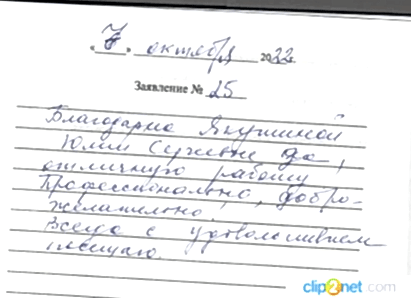 « 7 » октября 2022
Заявление № 25
Благодарна Якушиной
Юлии за
отличную работу
Профессионально, добро-
желательно!
Всегда с удовольствием
посещаю.
clip2net.com